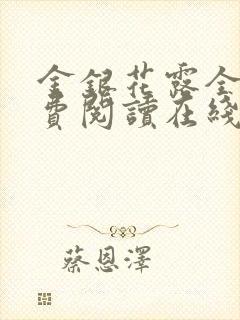 金銀花露全
費閱讀在綫
蔡恩澤